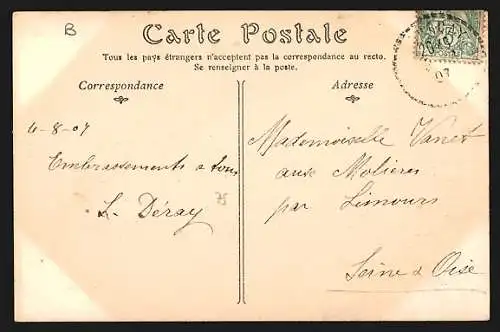 B
Carte Postale
Tous les pays étrangers n'acceptent pas la correspondance au recto.
Se renseigner à la poste.
Correspondance
Adresse
4-8-07
Embrassements a tous
L. Déray
75
Mademoiselle Vanet
aux Molières
par Limours
Seine & Oise
07